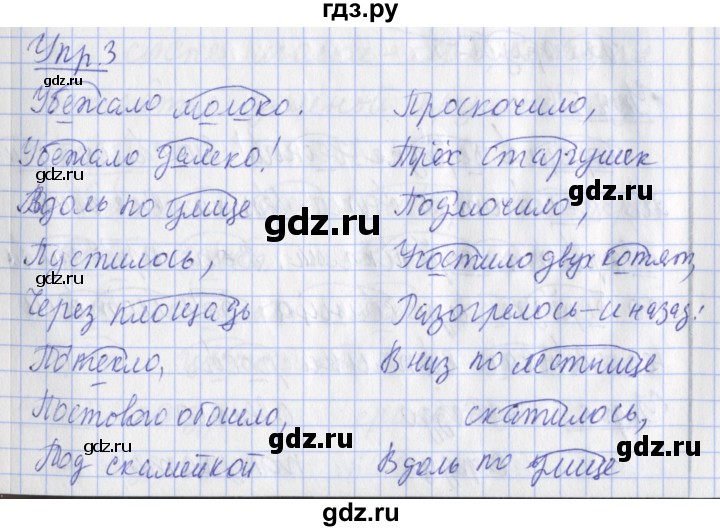 гдз.ру
Упр.3
Убежало молоко.
Убежало далеко!
Вдоль по улице
Пустилось,
Через площадь
Потекло,
Постового обошло,
Под скамейкой
Проскочило,
Трёх старушек
Подмочило,
Угостило двух котят,
Разогрелось – и назад:
Вниз по лестнице
скатилось,
Вдоль по улице
gdz.ru
gdz.ru
gdz.ru
gdz.ru
gdz.ru
gdz.ru
gdz.ru
gdz.ru
gdz.ru